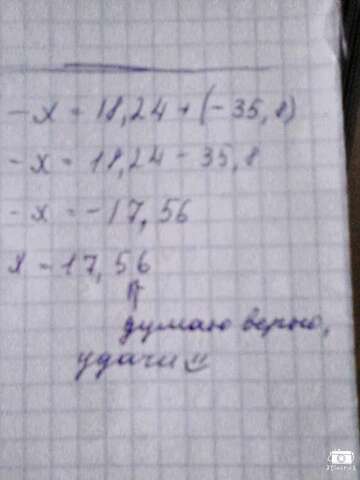 -x = 18,24 + (-35,8)
-x = 18,24 - 35,8
-x = -17,56
x = 17,56
думаю верно,
удачи